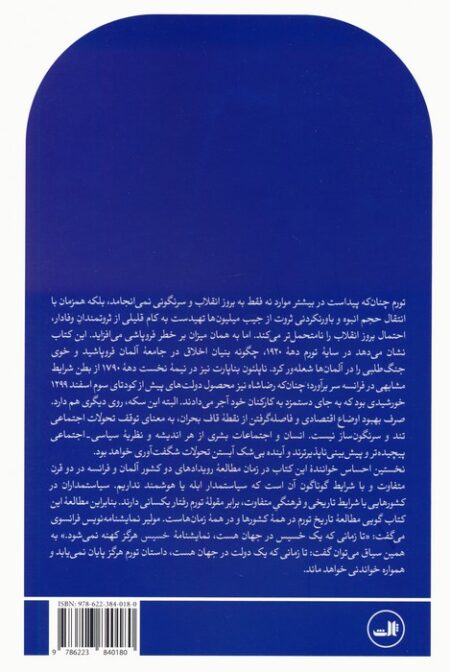 تورم چنان‌که پیداست در بیشتر موارد نه فقط به بروز انقلاب و سرنگونی نمی‌انجامد، بلکه همزمان با
انتقال حجم انبوه و باورنکردنی ثروت از جیب میلیون‌ها تهیدست به کام قلیلی از ثروتمندانِ وفادار،
احتمال بروز انقلاب را نامحتمل‌تر می‌کند. اما به همان میزان بر خطر فروپاشی می‌افزاید. این کتاب
نشان می‌دهد در سایهٔ تورم دههٔ ۱۹۲۰، چگونه بنیان اخلاق در جامعهٔ آلمان فروپاشید و خوی
جنگ‌طلبی را در آلمان‌ها شعله‌ور کرد. ناپلئون بناپارت نیز در نیمهٔ نخست دههٔ ۱۷۹۰ از بطن شرایط
مشابهی در فرانسه سر برآورد؛ چنان‌که رضاشاه نیز محصول دولت‌های پیش از کودتای سوم اسفند ۱۲۹۹
خورشیدی بود که به جای دستمزد به کارکنان خود آجر می‌دادند. البته این سکه، روی دیگری هم دارد.
صرف بهبود اوضاع اقتصادی و فاصله‌گرفتن از نقطهٔ قاف بحران، به معنای توقف تحولات اجتماعی
تند و سرنگون‌ساز نیست. انسان و اجتماعات بشری از هر اندیشه و نظریهٔ سیاسی-اجتماعی
پیچیده‌تر و پیش‌بینی‌ناپذیرترند و آینده بی‌شک آبستن تحولات شگفت‌آوری خواهد بود.
نخستین احساس خوانندهٔ این کتاب در زمان مطالعهٔ رویدادهای دو کشور آلمان و فرانسه در دو قرن
متفاوت و با شرایط گوناگون آن است که سیاستمدار ابله یا هوشمند نداریم. سیاستمداران در
کشورهایی با شرایط تاریخی و فرهنگیِ متفاوت، برابر مقولهٔ تورم رفتار یکسانی دارند. بنابراین مطالعهٔ این
کتاب گویی مطالعهٔ تاریخ تورم در همهٔ کشورها و در همهٔ زمان‌هاست. مولیر نمایشنامه‌نویس فرانسوی
می‌گفت: «تا زمانی که یک خسیس در جهان هست، نمایشنامهٔ خسیس هرگز کهنه نمی‌شود.» به
همین سیاق می‌توان گفت: تا زمانی که یک دولت در جهان هست، داستان تورم هرگز پایان نمی‌یابد و
همواره خواندنی خواهد ماند.
ISBN: 978-622-384-018-0
9 786223 840180
ثالث